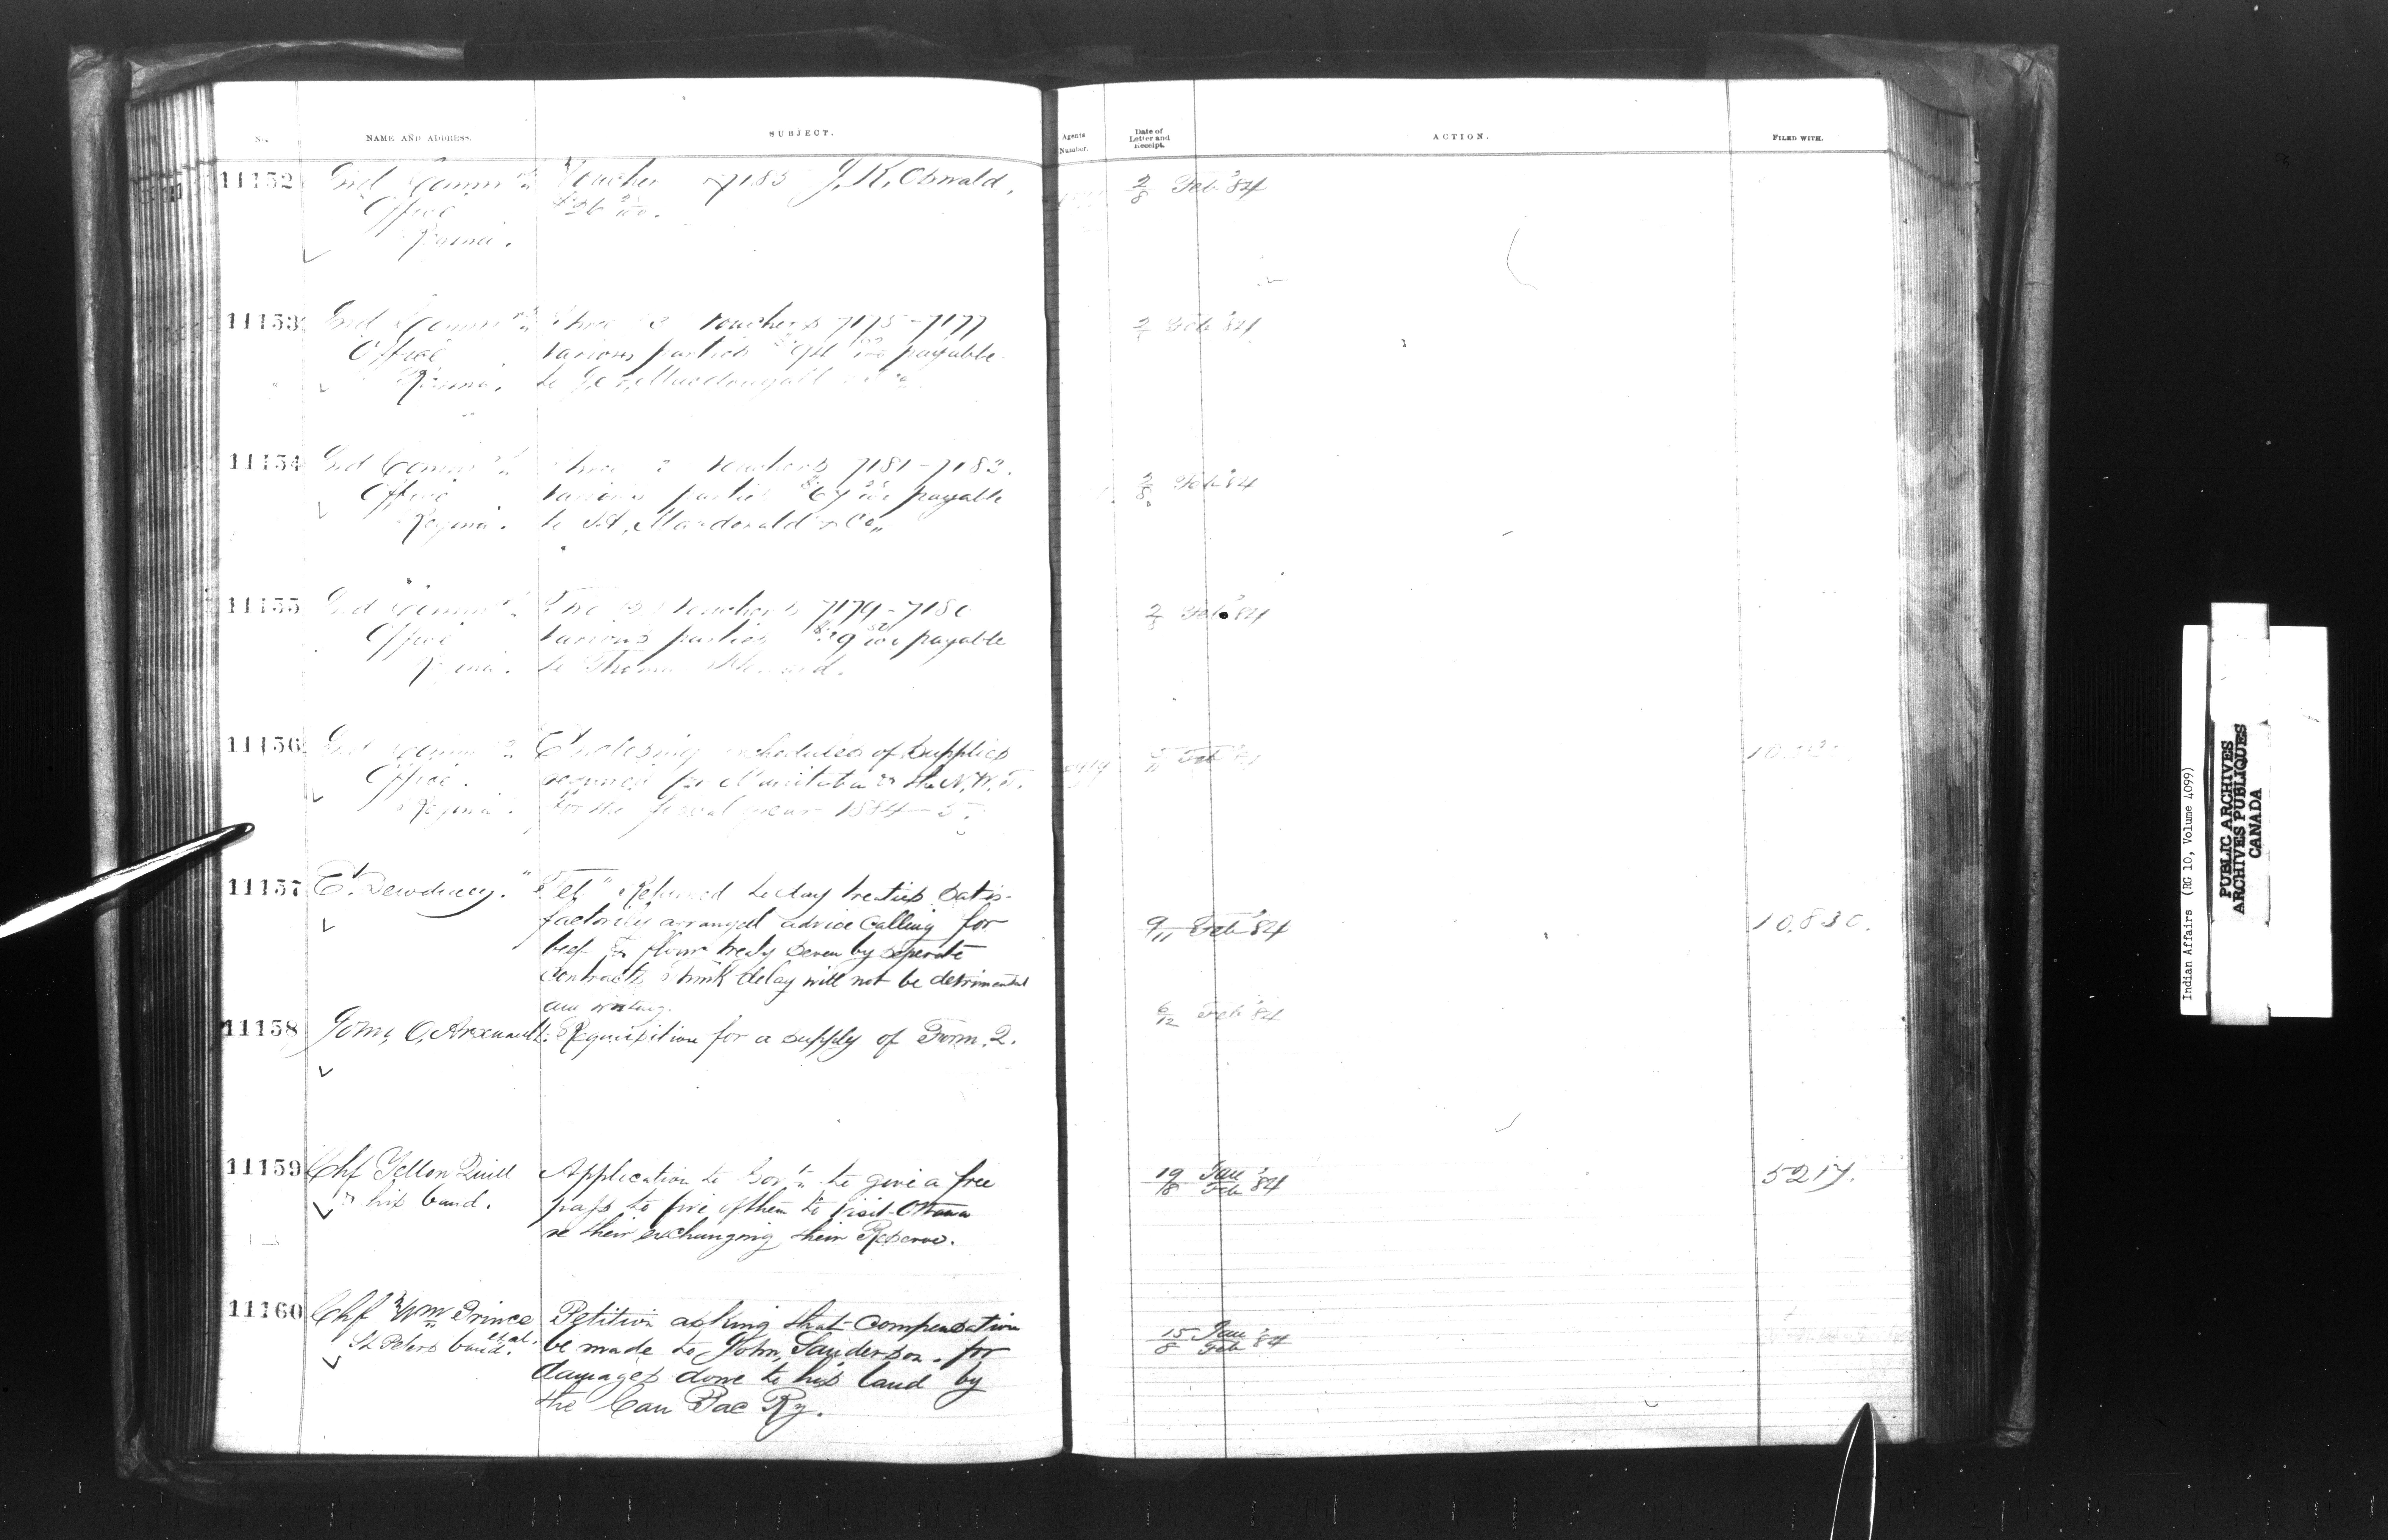 No. NAME AND ADDRESS. SUBJECT. Agents Number. Date of Letter and Receipt. ACTION. FILED WITH.
11152 Ind Commr's Voucher 7185 J. K. Oswald. 2/8 Feb '84
Office
Regina.
11153 Ind Commr's Three 3 Vouchers 7175-7177 Feb '84
Office various parties payable
Regina. to Macdougall
11154 Ind Commr's Three 3 Vouchers 7181-7183. 2/8 Feb '84
Office various parties payable
Regina. to A. Macdonald & Co.
11155 Ind Commr's Vouchers 7179-7180 Feb '84
Office various parties payable
Regina. to Thomas
11156 Ind Commr's Enclosing schedules of supplies Feb
Office. required for Manitoba & the N.W.T.
Regina. for the fiscal year 1884-5.
11157 E. Dewdney. "Tel" Returned to day treaties satis-
factorily arranged advice calling for 9/11 Feb '84 10,830.
beef & flour treaty seven by seperate
contracts think delay will not be detrimental
am writing.
11158 John O. Arsenault. Requisition for a supply of Form 2. 6/12 Feb '84
11159 Chf Yellow Quill Application to Govt to give a free 19/18 Jan/Feb '84 5217.
& his band. pass to five of them to visit Ottawa
re their exchanging their Reserve.
11160 Chf Wm Prince Petition asking that compensation
et al. St Peters band. be made to John Sanderson for 15/8 Jan/Feb '84
damages done to his land by
the Can Pac Ry.
Indian Affairs (RG 10, Volume 4099)
PUBLIC ARCHIVES
ARCHIVES PUBLIQUES
CANADA